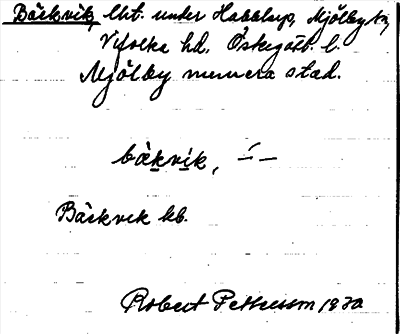 Bäckvik, lht. under Habblarp, Mjölby sn,
Vifolka hd. Östergötl. l.
Mjölby numera stad.
bäkvik,
Bäckvek kb.
Robert Pettersson 1930